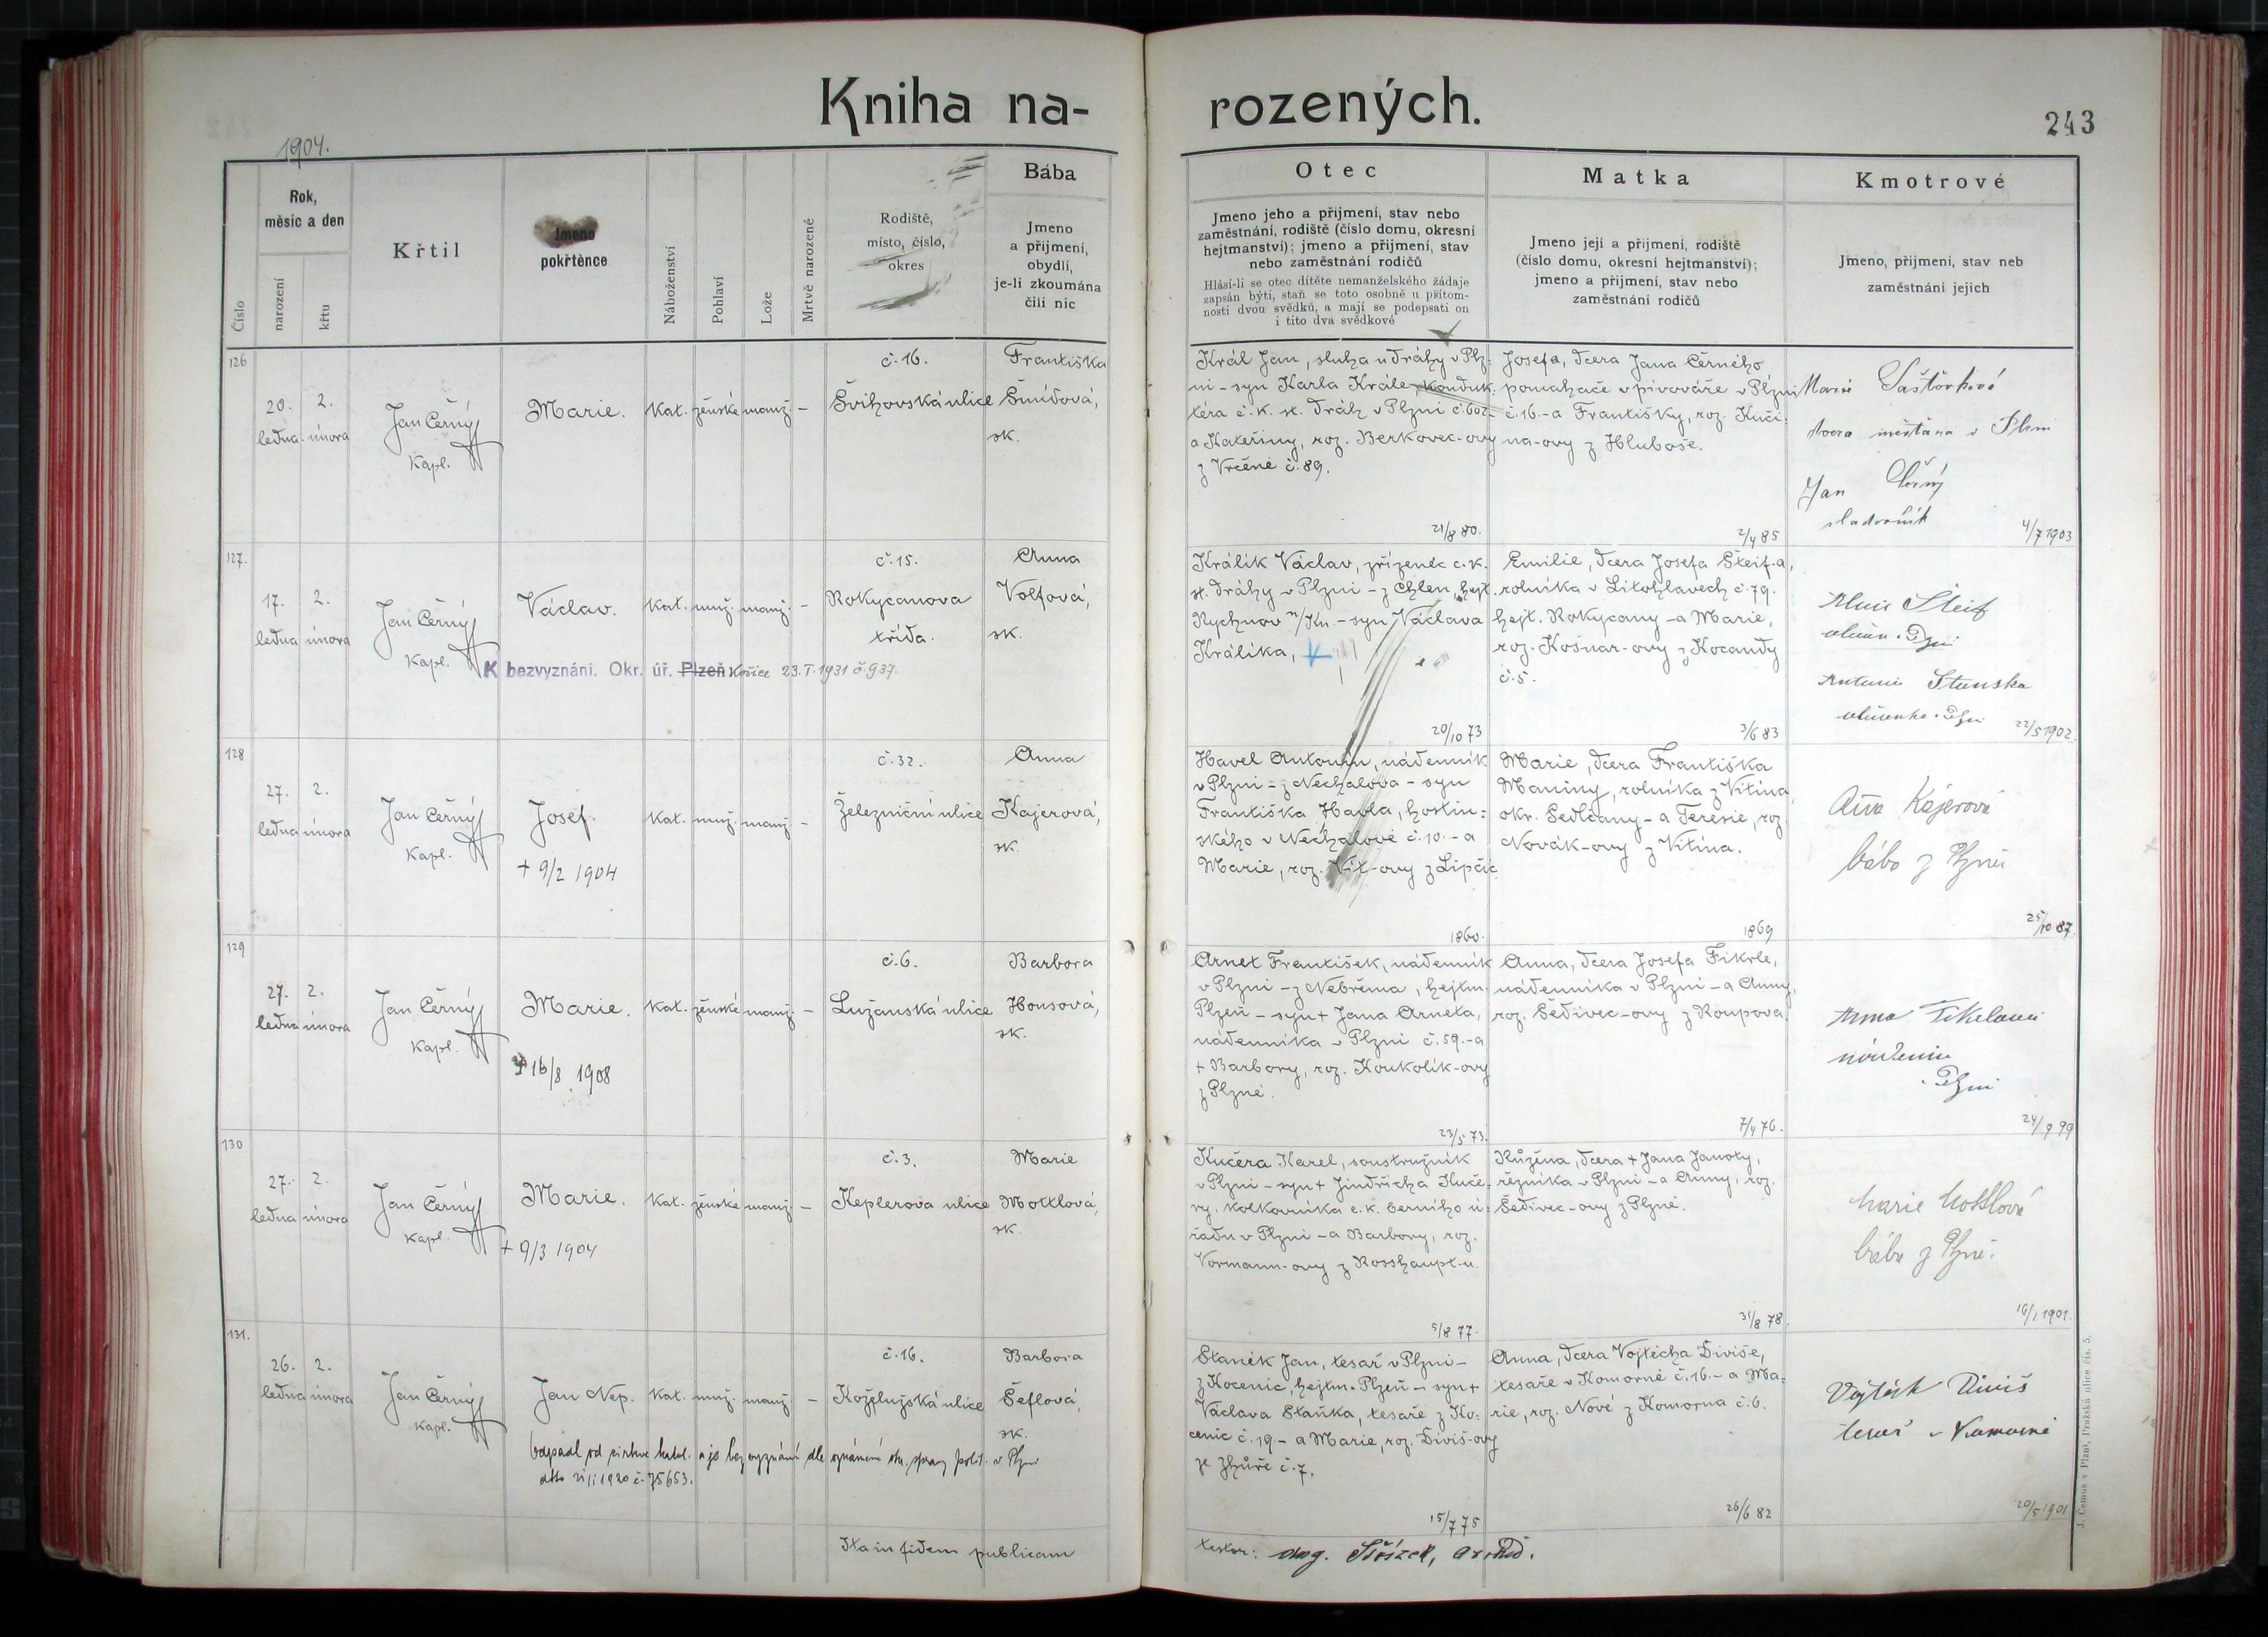 Kniha na-
rozených.
243
1904.
Číslo
Rok,
měsíc a den
narození
křtu
Křtil
Jmeno
pokřtěnce
Náboženství
Pohlaví
Lože
Mrtvě narozené
Rodiště,
místo, číslo,
okres
Bába
Jmeno
a příjmení,
obydlí,
je-li zkoumána
čili nic
Otec
Jmeno jeho a příjmení, stav nebo
zaměstnání, rodiště (číslo domu, okresní
hejtmanství); jmeno a příjmení, stav
nebo zaměstnání rodičů
Hlásí-li se otec dítěte nemanželského žádaje
zapsán býti, staň se toto osobně u přítom-
nosti dvou svědků, a mají se podepsati on
i tito dva svědkové
Matka
Jmeno její a příjmení, rodiště
(číslo domu, okresní hejtmanství);
jmeno a příjmení, stav nebo
zaměstnání rodičů
Kmotrové
Jmeno, příjmení, stav neb
zaměstnání jejich
126
20.
ledna
2.
února
Jan Černý
Kapl.
Marie.
Kat.
ženské
manž.
–
č. 16.
Švihovská ulice
Františka
Šmídová,
zk.
Král Jan, sluha u dráhy v Plz-
ni – syn Karla Krále, konduk-
téra c. k. st. dráh v Plzni č. 602 –
a Kateřiny, roz. Berkovec-ovy
z Vrčeně č. 89.
21/8 80.
Josefa, dcera Jana Černého
pomahače v pivováře v Plzni
č. 16. – a Františky, roz. Kuči-
na-ovy z Hluboše.
2/4 85
Marie
dcera měšťana v Plzni
Jan Černý
sladovník
4/7 1903
127.
17.
ledna
2.
února
Jan Černý
Kapl.
Václav.
Kat.
muž.
manž.
–
č. 15.
Rokycanova
třída.
Anna
Volfová,
zk.
K bezvyznání. Okr. úř. Plzeň Košice 23.I.1931 č. 937.
Králík Václav, zřízenec c. k.
st. dráhy v Plzni – z Chlen, hejt.
Rychnov n/Kn. – syn Václava
Králíka,
20/10 73
Emilie, dcera Josefa Šteif-a,
rolníka v Litohlavech č. 79.
hejt. Rokycany – a Marie,
roz. Košnar-ovy z Kocandy
č. 5.
3/6 83
Šteif
Antonie
22/5 1902.
128
27.
ledna
2.
února
Jan Černý
Kapl.
Josef.
+ 9/2 1904
Kat.
muž.
manž.
–
č. 32.
Železniční ulice
Anna
Kajerová,
zk.
Havel Antonín, nádenník
v Plzni – z Nechalova – syn
Františka Havla, hostin-
ského v Nechalově č. 10. – a
Marie, roz. Vít-ovy z Lipčic
1860.
Marie, dcera Františka
Maniny, rolníka z Vitína
okr. Sedlčany – a Teresie, roz.
Novák-ovy z Vitína.
1869
Anna Kajerová
bába z Plzně
25/10 87.
129
27.
ledna
2.
února
Jan Černý
Kapl.
Marie.
+ 16/8 1908
Kat.
ženské
manž.
–
č. 6.
Lužanská ulice
Barbora
Housová,
zk.
Arnet František, nádenník
v Plzni – z Nebřema, hejtm.
Plzeň – syn + Jana Arneta,
nádenníka v Plzni č. 59. – a
+ Barbory, roz. Koukolík-ovy
z Plzně.
23/5 73.
Anna, dcera Josefa Fikrle,
nádenníka v Plzni – a Anny,
roz. Šedivec-ovy z Roupova.
7/4 76.
Anna
Plzni
24/9 99
130
27.
ledna
2.
února
Jan Černý
Kapl.
Marie.
+ 9/3 1904
Kat.
ženské
manž.
–
č. 3.
Keplerova ulice
Marie
Mottlová,
zk.
Kučera Karel, soustružník
v Plzni – syn + Jindřicha Kuče-
ry, kolkovníka c. k. berního ú-
řadu v Plzni – a Barbory, roz.
Vormann-ovy z Rosshaupt-u.
5/8 77.
Růžena, dcera + Jana Janoty,
řezníka v Plzni – a Anny, roz.
Šedivec-ovy z Plzně.
31/8 78
Marie Mottlová
bába z Plzně.
16/1 1901.
131.
26.
ledna
2.
února
Jan Černý
Kapl.
Jan Nep.
Kat.
muž.
manž.
–
č. 16.
Koželužská ulice
Barbora
Šeflová,
zk.
odpadl od církve katol. a je bez vyznání dle oznámení okr. správy polit. v Plzni
č. 75653.
Staněk Jan, tesař v Plzni –
z Kocenic, hejtm. Plzeň – syn +
Václava Staňka, tesaře z Ko-
cenic č. 19 – a Marie, roz. Diviš-ovy
ze Zhůře č. 7.
15/7 75
Anna, dcera Vojtěcha Diviše,
tesaře v Komorně č. 16. – a Ma-
rie, roz. Nové z Komorna č. 6.
26/6 82
Vojtěch Diviš
tesař v Komorně
20/5 1901
Ita in fidem publicam
testor:
J. Čemus v Plzni, Pražská ulice čís. 5.